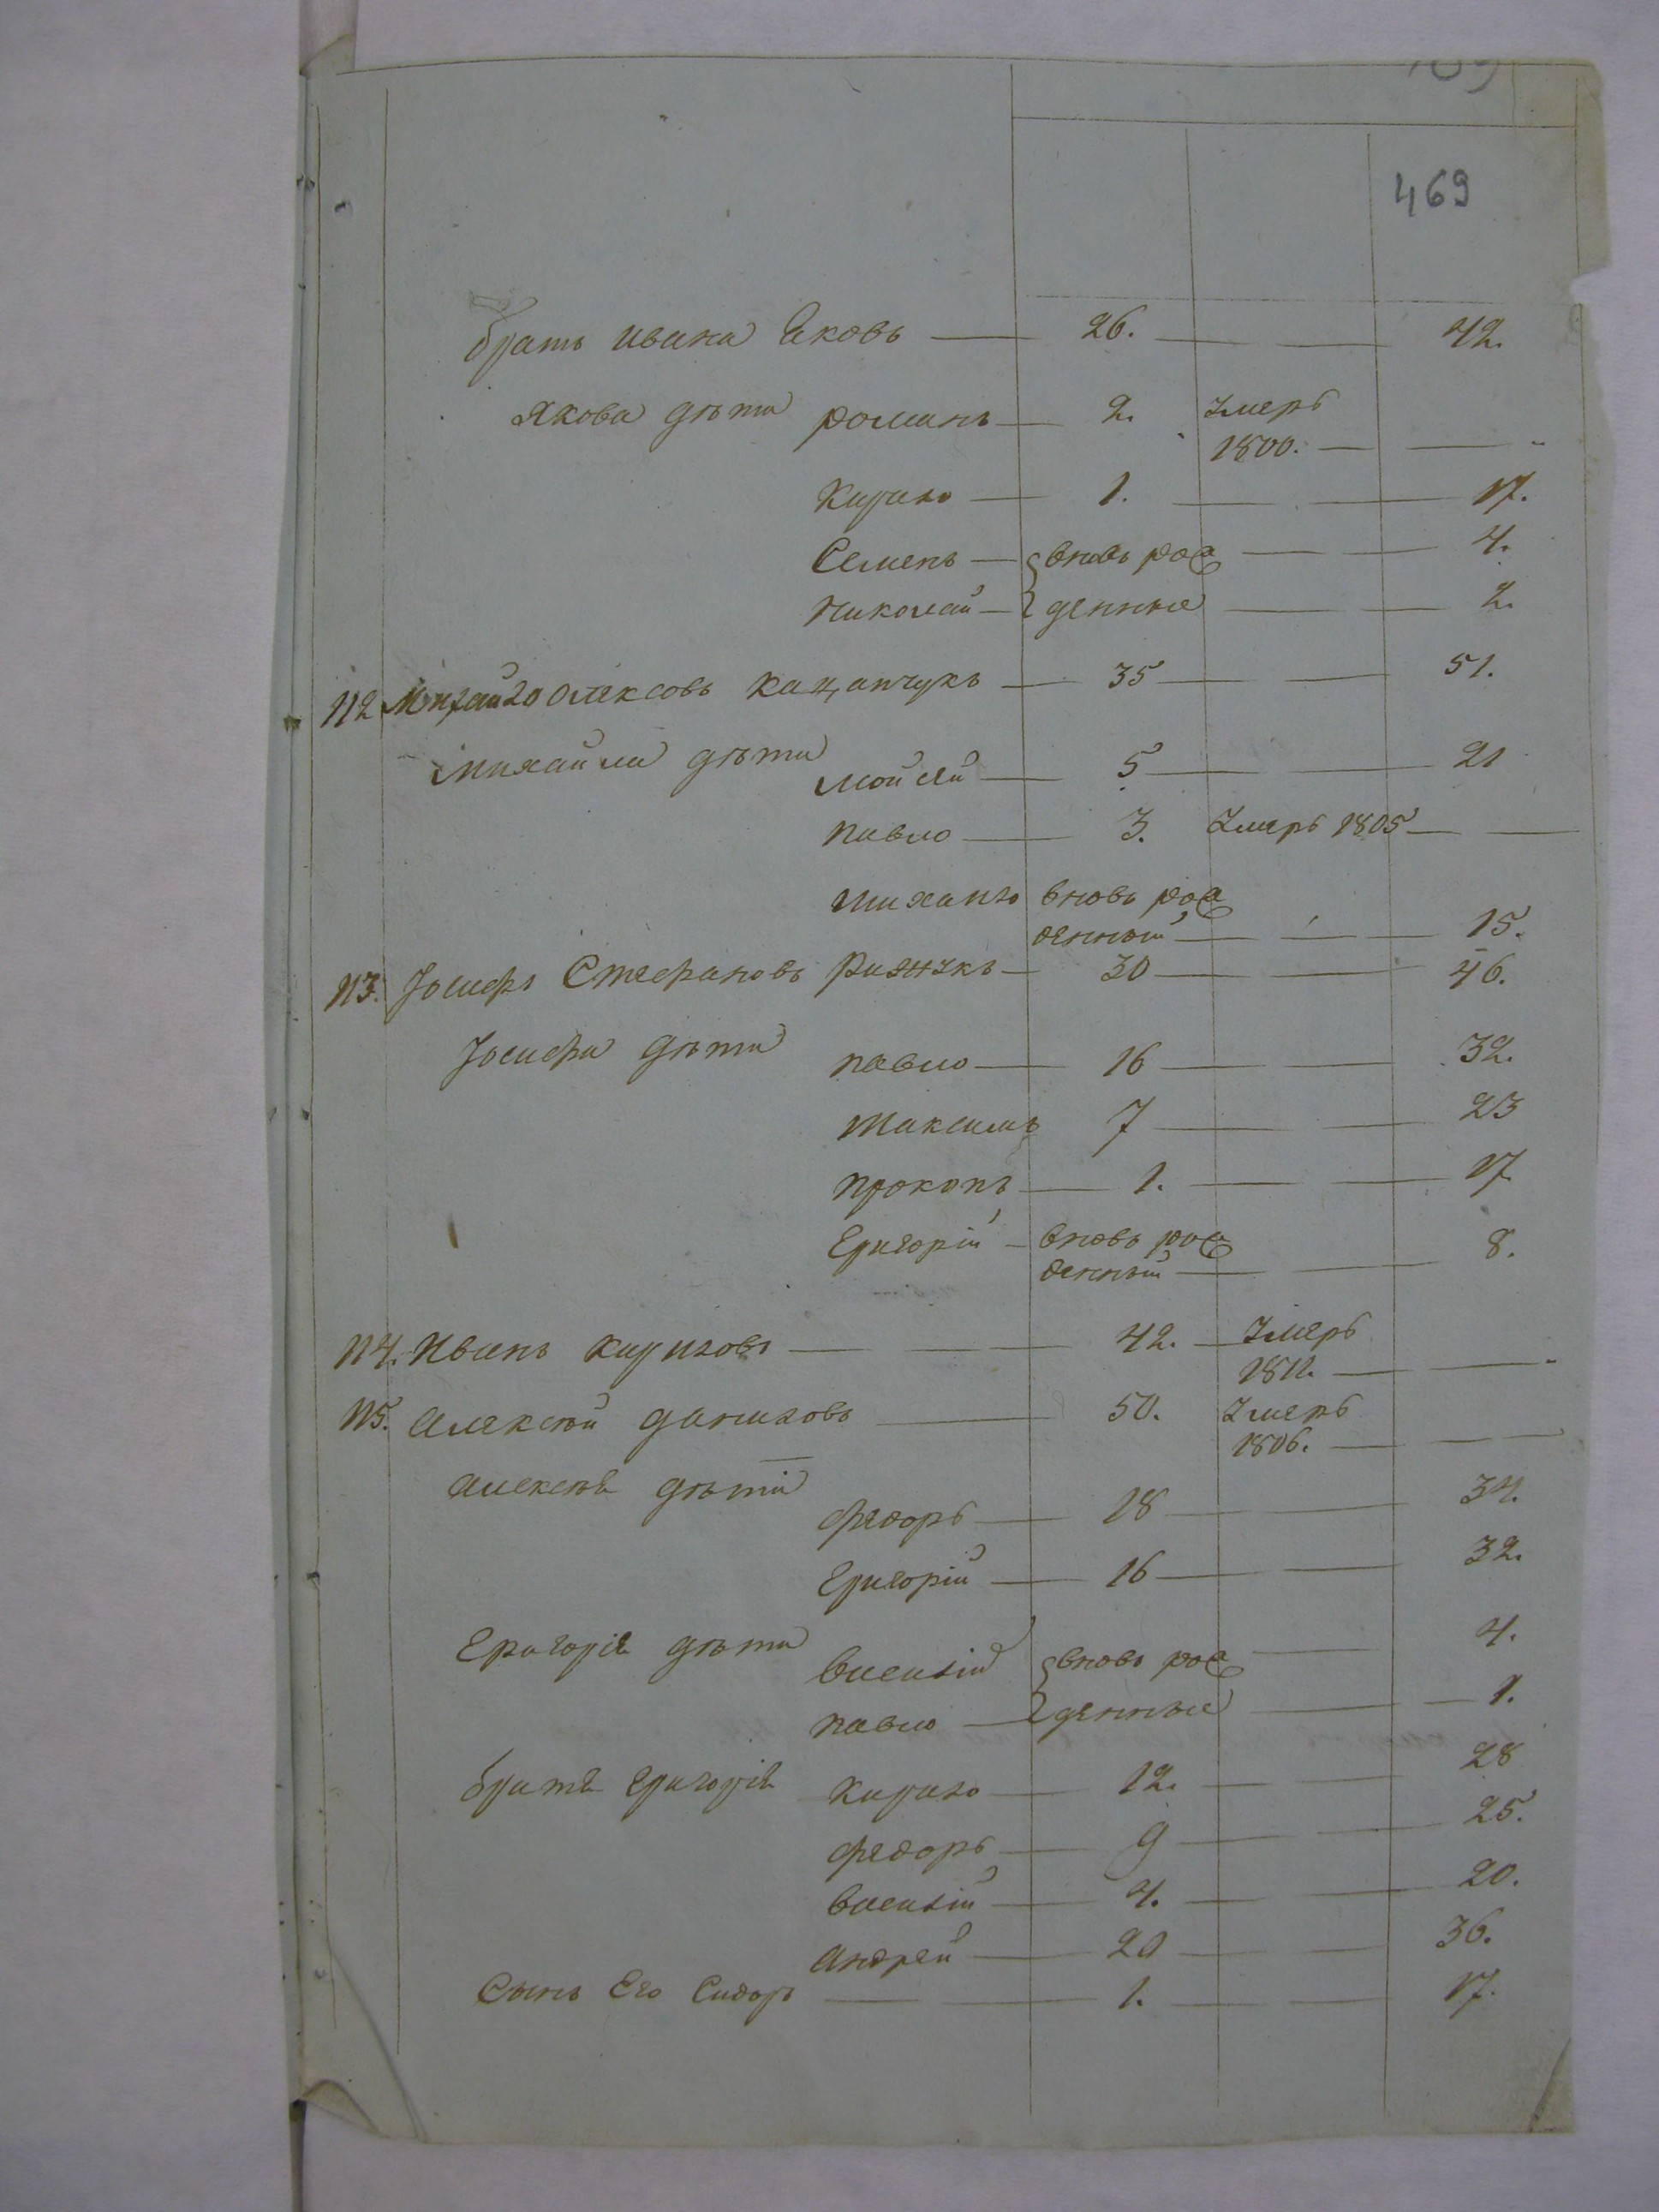 469
братъ ивана Яковъ — 26. — — 42.
Якова дѣти романъ — 2. Умеръ
1800. — —
Кирило — 1. — — 17.
Семенъ — вновь рож — — 4.
Николай — денные — — 2.
112 Михайло Олексовъ Кацапчукъ — 35 — — 51.
Михайла дѣти
Мойсей — 5 — — 21
павло — 3. Умеръ 1805 — —
михайло вновь рож
денный — — 15.
113. Іосифъ Стефановъ Рижукъ — 30 — — 46.
Іосифа дѣти павло — 16 — — 32.
Максимъ 7 — — 23
прокопъ — 1. — — 17
Григорій — вновь рож
денный — — 8.
114. Иванъ Кириловъ — — 42. — Умеръ
1812. — —
115. Алексѣй даниловъ — 50. Умеръ
1806. — —
Алексѣя дѣти
федоръ — 18 — — 34.
Григорій — 16 — — 32.
Григорія дѣти Василій вновь рож — 4.
павло — денные — — 1.
братя Григорія Кирило — 12. — — 28
федоръ — 9 — — 25.
Василій — 4. — — 20.
Андрей — 20 — — 36.
Сынъ Его Сидоръ — — 1. — — 17.